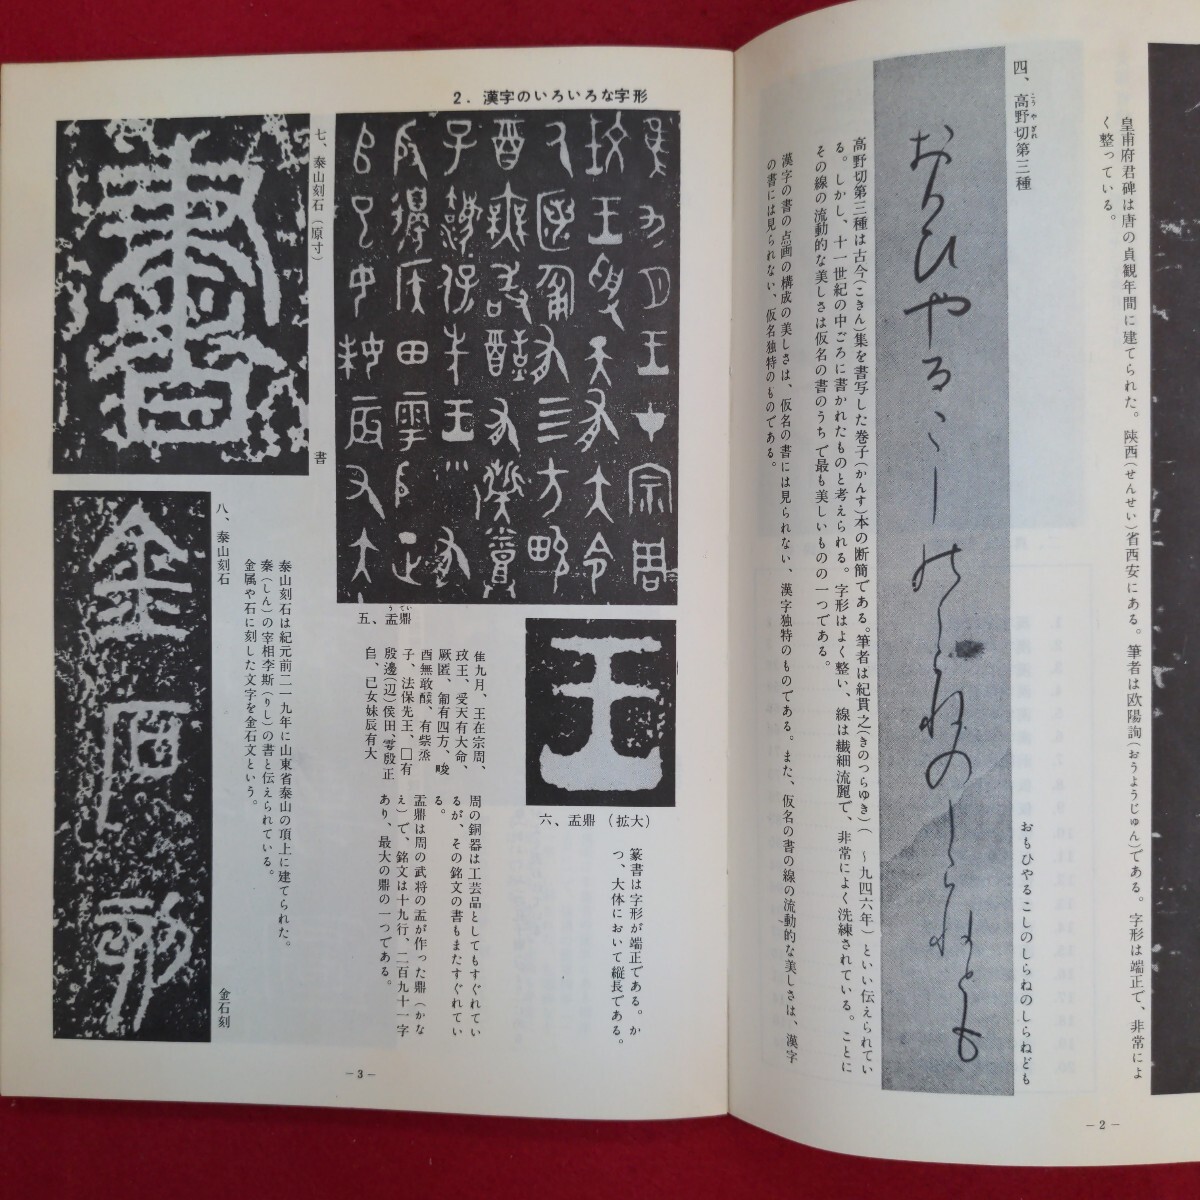 皇甫府君碑は唐の貞観年間に建てられた。陝西(せんせい)省西安にある。筆者は欧陽詢(おうようじゅん)である。字形は端正で、非常によ
く整っている。
四、高野切第三種
おもひやるこしのしらねのしらねども
高野切第三種は古今(こきん)集を書写した巻子(かんす)本の断簡である。筆者は紀貫之(きのつらゆき)(〜九四六年)といい伝えられてい
る。しかし、十一世紀の中ごろに書かれたものと考えられる。字形はよく整い、線は繊細流麗で、非常によく洗練されている。ことに
その線の流動的な美しさは仮名の書のうちで最も美しいものの一つである。
漢字の書の点画の構成の美しさは、仮名の書には見られない、漢字独特のものである。また、仮名の書の線の流動的な美しさは、漢字
の書には見られない、仮名独特のものである。
―2―
2．漢字のいろいろな字形
五、盂鼎
隹九月、王在宗周、
玟王、受天有大命、
厥匿、匍有四方、畯
酉無敢醆、有祡烝
子、法保先王、□有
殷邊(辺)侯田、雩殷正
𠂤、已女妹辰有大
王
六、盂鼎(拡大)
篆書は字形が端正である。か
つ、大体において縦長である。
周の銅器は工芸品としてもすぐれてい
るが、その銘文の書もまたすぐれてい
る。
盂鼎は周の武将の盂が作った鼎(かな
え)で、銘文は十九行、二百九十一字
あり、最大の鼎の一つである。
七、泰山刻石(原寸)
書
八、泰山刻石
金石刻
泰山刻石は紀元前二一九年に山東省泰山の頂上に建てられた。
秦(しん)の宰相李斯(りし)の書と伝えられている。
金属や石に刻した文字を金石文という。
―3―